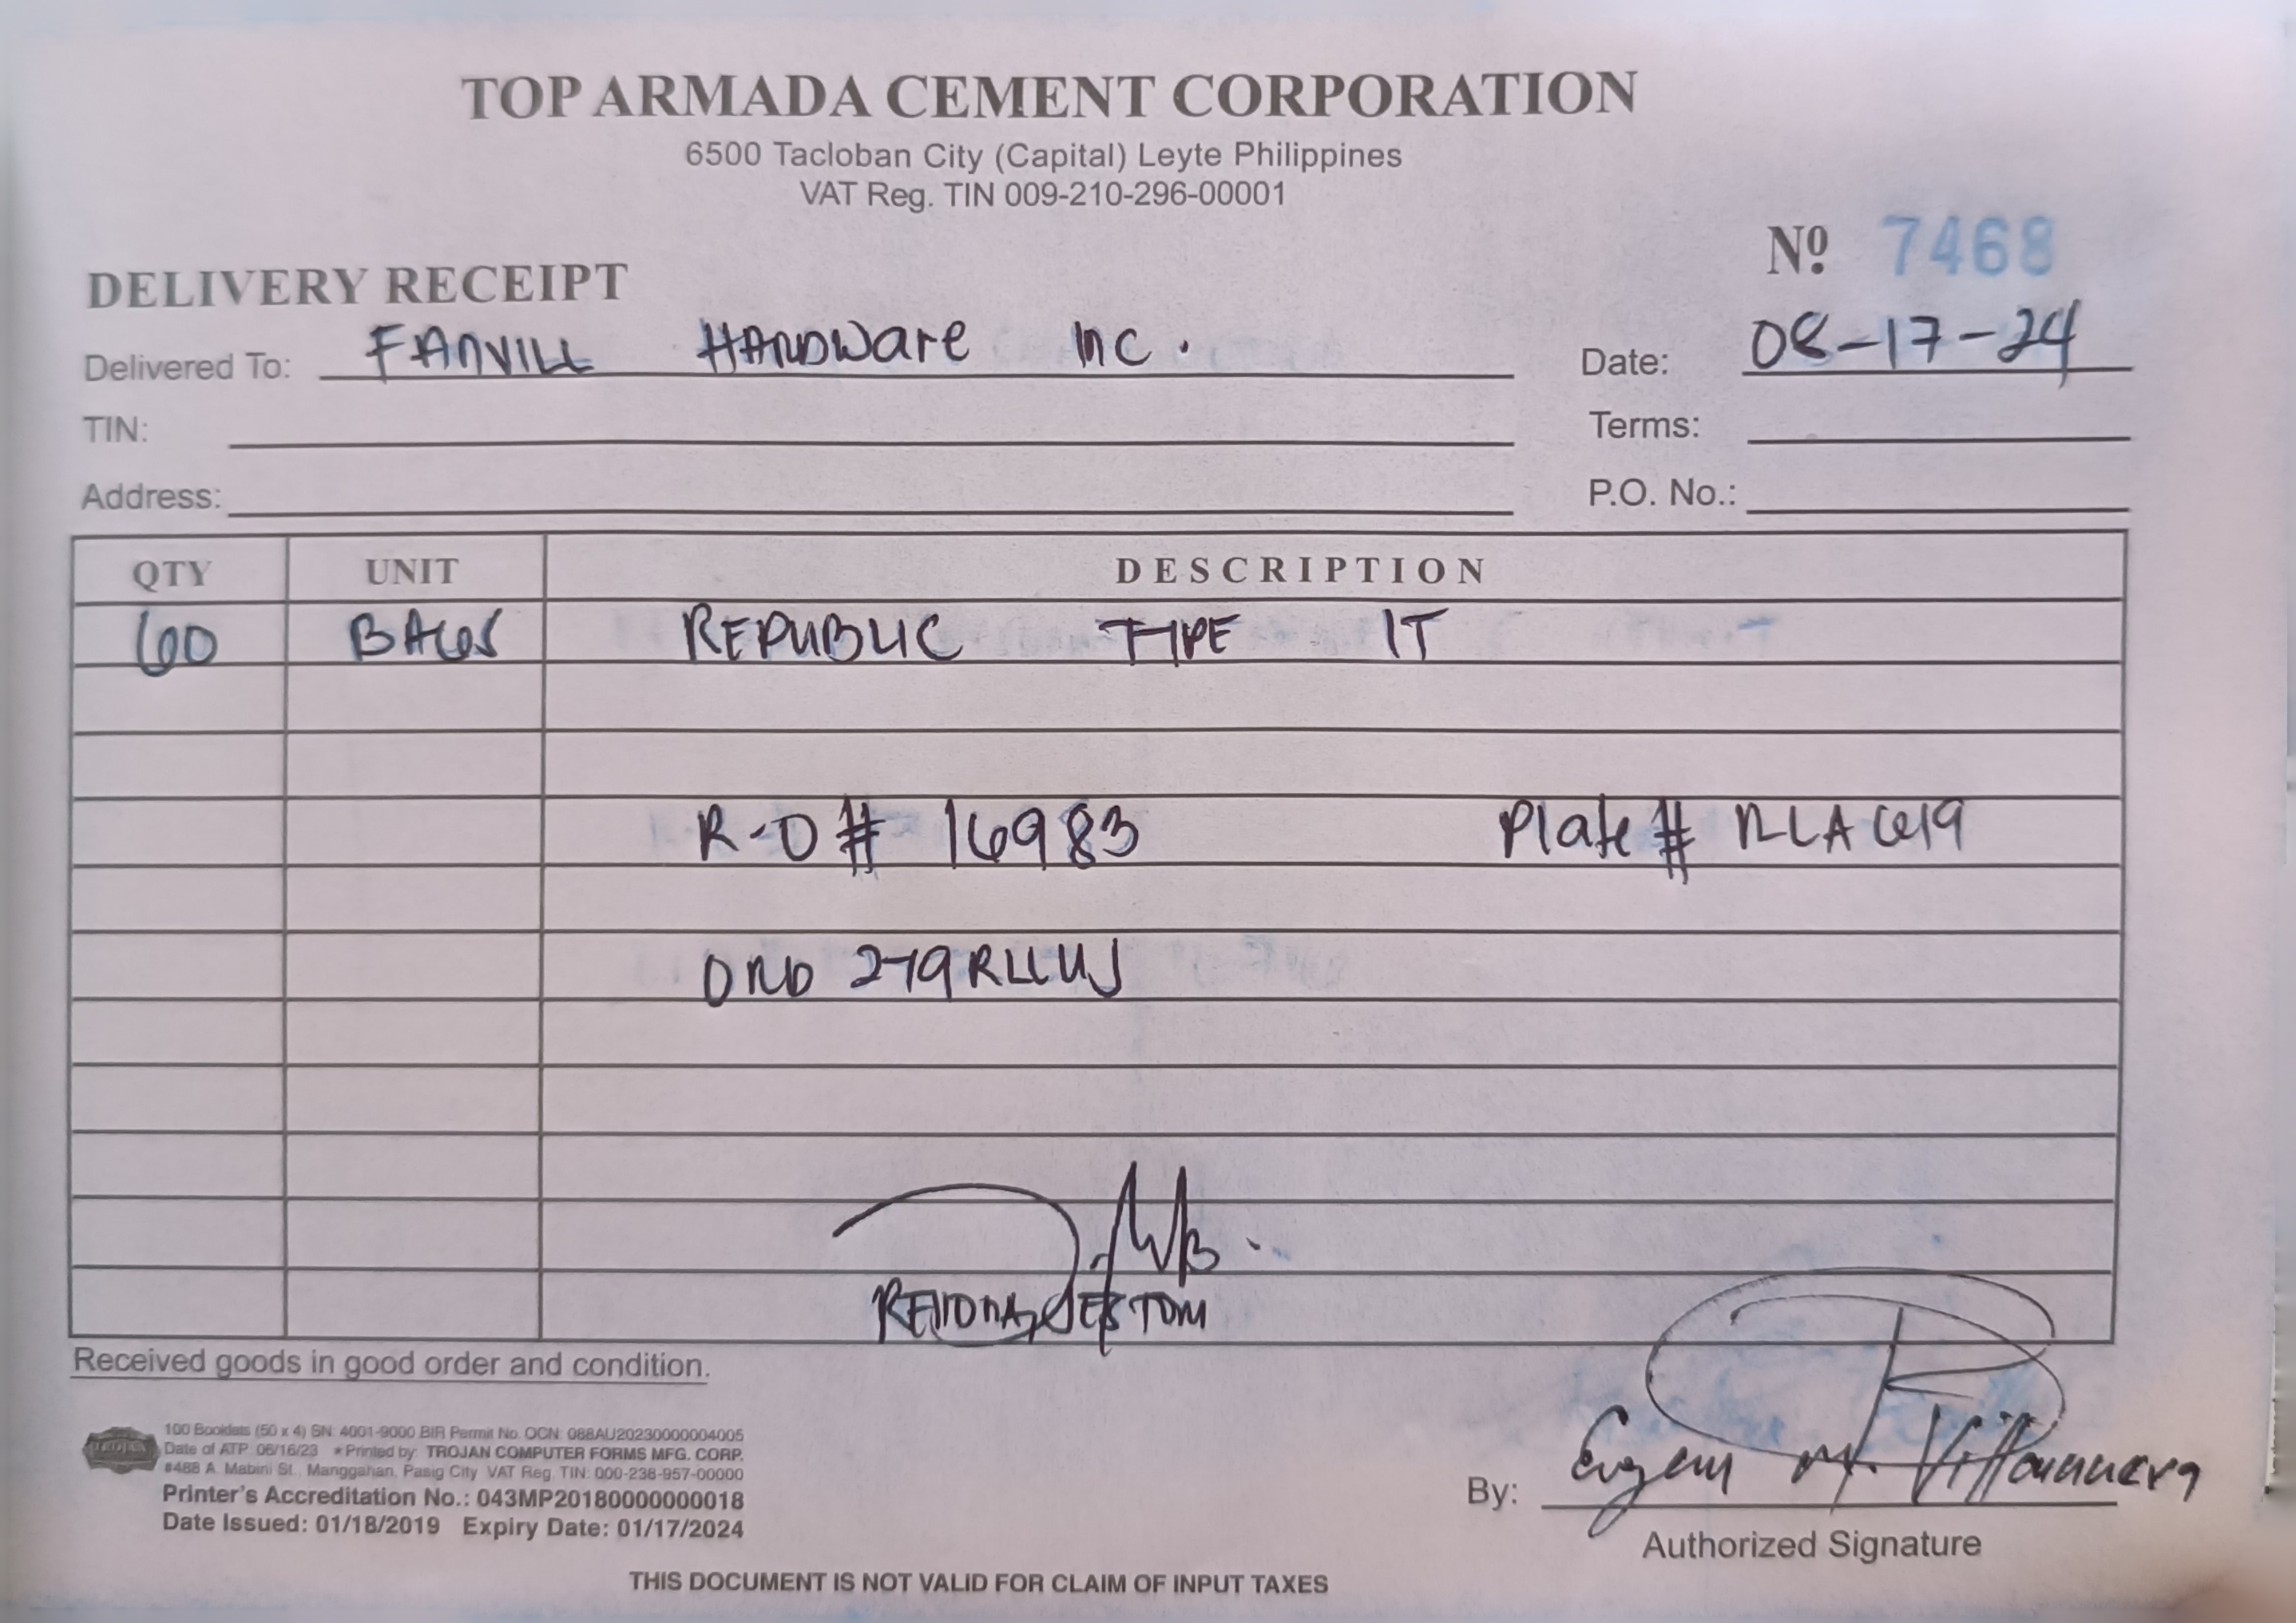 TOP ARMADA CEMENT CORPORATION
6500 Tacloban City (Capital) Leyte Philippines
VAT Reg. TIN 009-210-296-00001
Nº 7468
DELIVERY RECEIPT
Delivered To: FANVILL HARDWare Inc. Date: 08-17-24
TIN: Terms:
Address: P.O. No.:
QTY UNIT DESCRIPTION
60 BAGS REPUBLIC TYPE IT
R-O# 16983 Plate #
279
Received goods in good order and condition.
100 Booklets (50 x 4) SN: 4001-9000 BIR Permit No. OCN: 088AU20230000004005
Date of ATP: 06/16/23 *Printed by: TROJAN COMPUTER FORMS MFG. CORP.
#488 A. Mabini St., Manggahan, Pasig City VAT Reg. TIN: 000-238-957-00000
Printer's Accreditation No.: 043MP20180000000018
Date Issued: 01/18/2019 Expiry Date: 01/17/2024
By:
Authorized Signature
THIS DOCUMENT IS NOT VALID FOR CLAIM OF INPUT TAXES